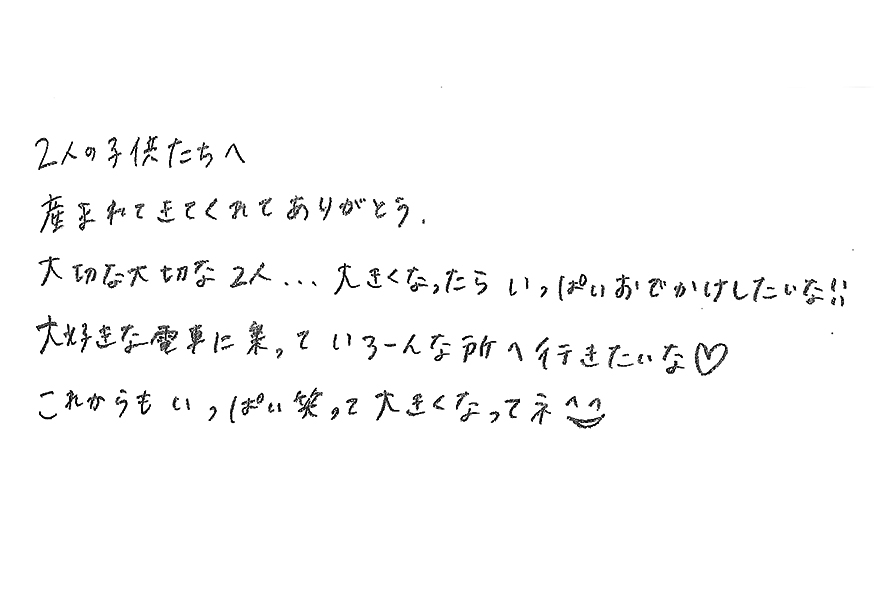 2人の子供たちへ
産まれてきてくれてありがとう.
大切な大切な2人... 大きくなったら いっぱいおでかけしたいな!!
大好きな電車に乗って いろーんな所へ行きたいな♡
これからも いっぱい笑って大きくなってネ^^